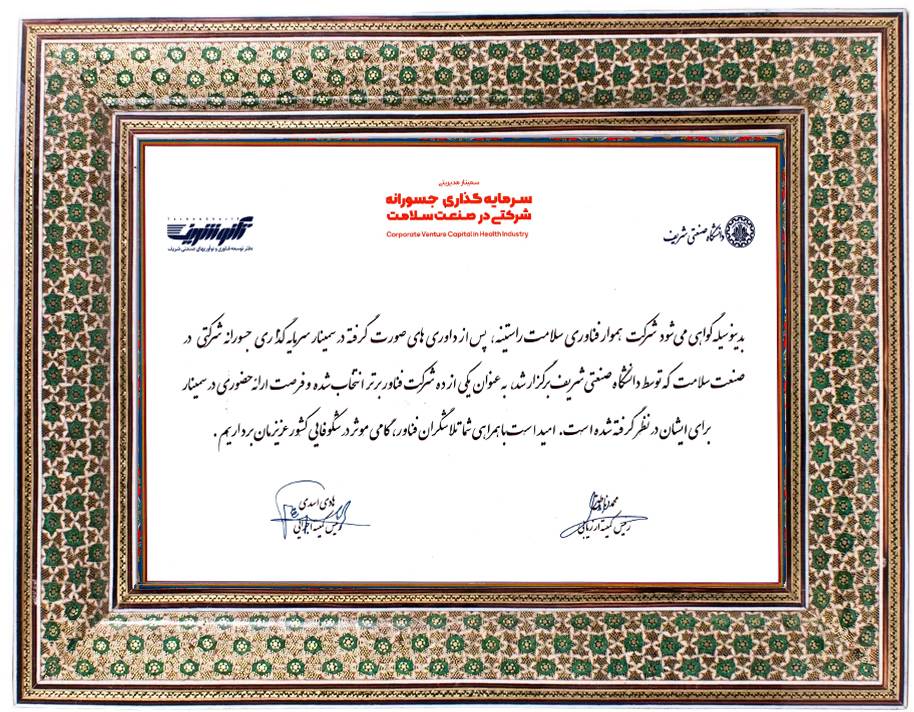 سمینار مدیریتی
سرمایه گذاری جسورانه
شرکتی در صنعت سلامت
Corporate Venture Capital in Health Industry
دانشگاه صنعتی شریف
تکنوشریف
دفتر توسعه فناوری و نوآوریهای صنعتی شریف
بدینوسیله گواهی می شود شرکت هموار فناوری سلامت راستینه، پس از داوری های صورت گرفته در سمینار سرمایه گذاری جسورانه شرکتی در
صنعت سلامت که توسط دانشگاه صنعتی شریف برگزار شد، به عنوان یکی از ده شرکت فناور برتر انتخاب شده و فرصت ارائه حضوری در سمینار
برای ایشان در نظر گرفته شده است. امید است با همراهی شما تلاشگران فناور، گامی موثر در شکوفایی کشور عزیزمان برداریم.
رئیس کمیته ارزیابی
هادی اسدی
رئیس کمیته اجرایی